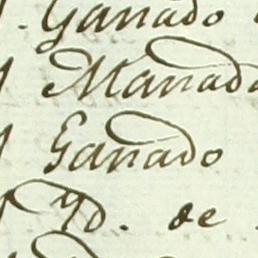 Ganado
Manada
Ganado
Yd. de